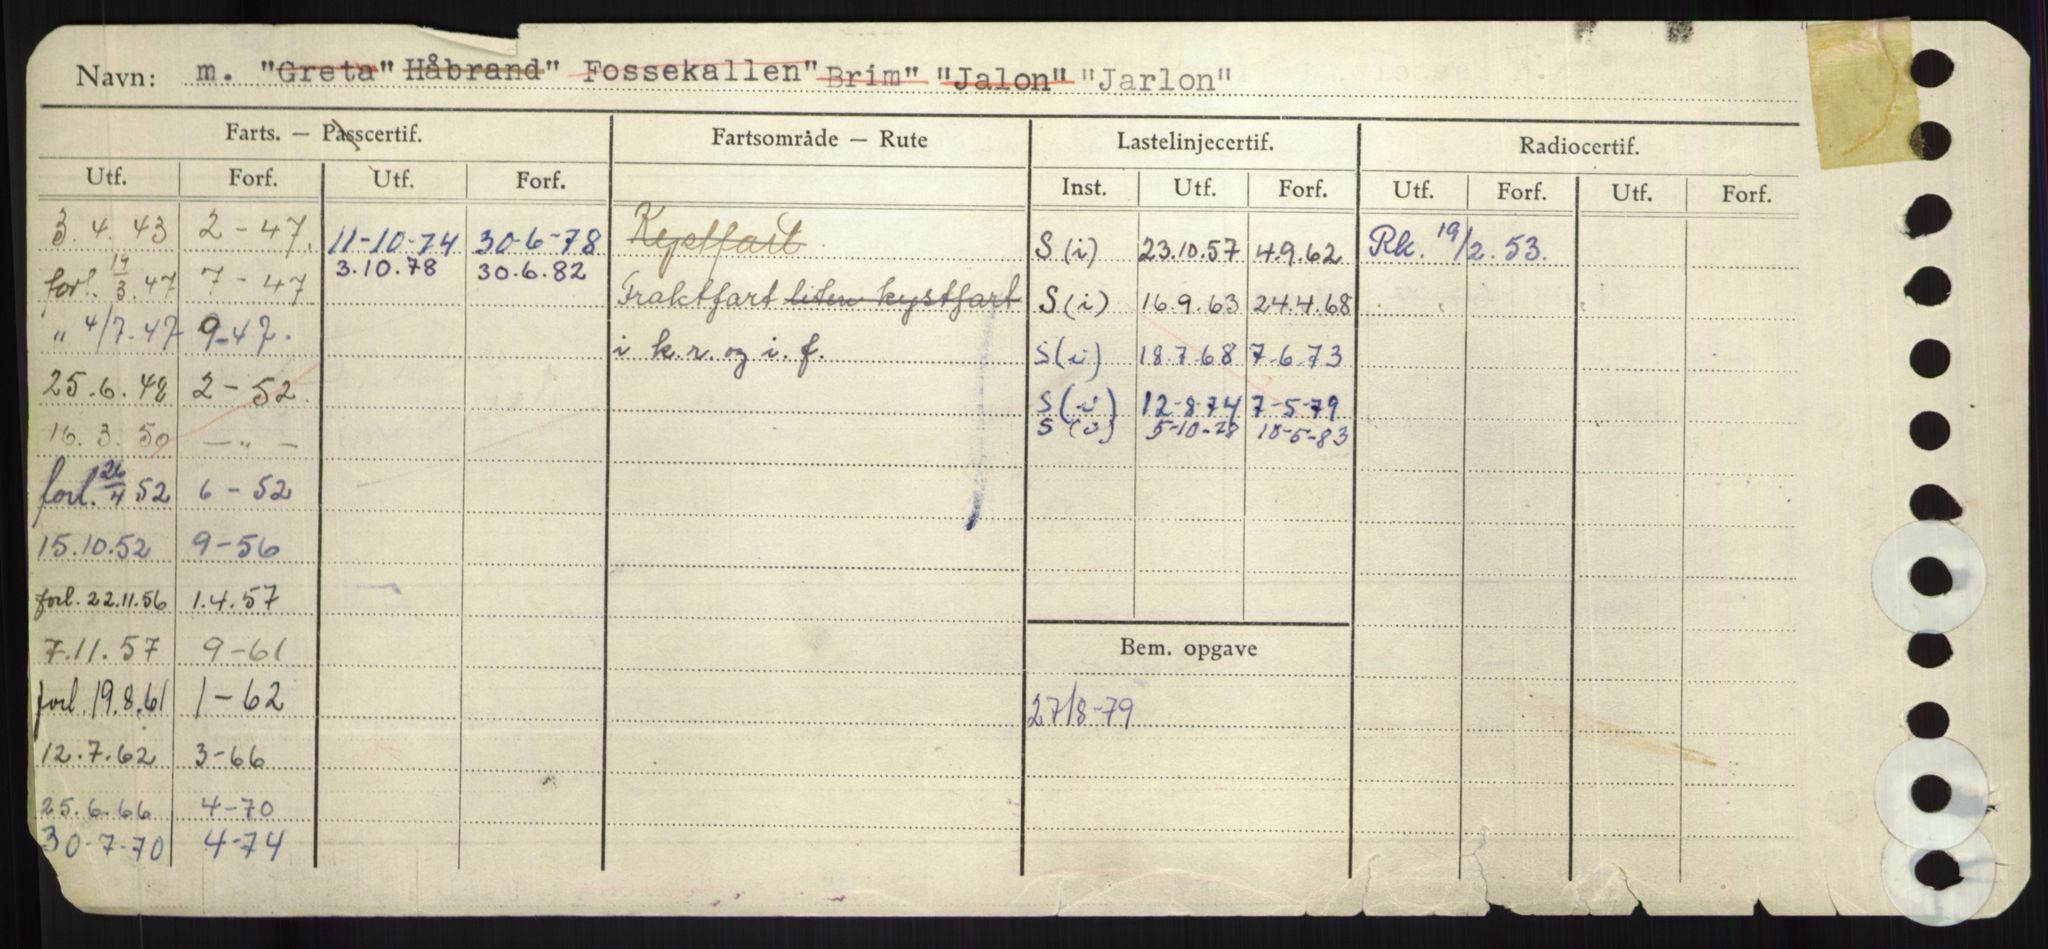 Navn: m. "Greta" Håbrand" Fossekallen" Brim" "Jalon" "Jarlon"
Farts. — Passcertif. Fartsområde — Rute Lastelinjecertif. Radiocertif.
Utf. Forf. Utf. Forf. Inst. Utf. Forf. Utf. Forf. Utf. Forf.
3. 4. 43 2 - 47. 11-10-74 30-6-78 Kystfart S (i) 23.10.57 4.9.62 Rk. 19/2. 53.
forl. 14/3. 47 7 - 47 3.10.78 30.6.82 Fraktfart liten kystfart S (i) 16.9.63 24.4.68
" 4/7. 47 9-47. i k.r. og i. f. S (i) 18.7.68 7.6.73
25. 6. 48 2 - 52. S (i) 12-8-74 7-5-79
16. 3. 50 — " — S (i) 5-10-78 18-5-83
forl. 26/4 52 6 - 52
15.10.52 9-56
forl. 22.11.56 1.4.57
7.11.57 9-61
Bem. opgave
forl. 19.8.61 1-62 27/8-79
12.7.62 3-66
25.6.66 4-70
30-7-70 4-74